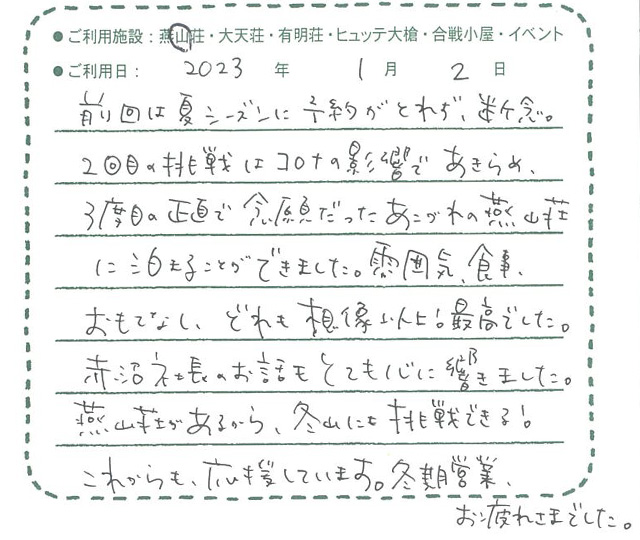 ●ご利用施設：燕山荘・大天荘・有明荘・ヒュッテ大槍・合戦小屋・イベント
●ご利用日： 2023 年 1 月 2 日
前回は夏シーズンに予約がとれず、断念。
2回目の挑戦はコロナの影響であきらめ、
3度目の正直で念願だったあこがれの燕山荘
に泊まることができました。雰囲気、食事、
おもてなし、どれも想像以上！最高でした。
赤沼社長のお話もとても心に響きました。
燕山荘があるから、冬山にも挑戦できる！
これからも、応援しています。冬期営業、
お疲れさまでした。